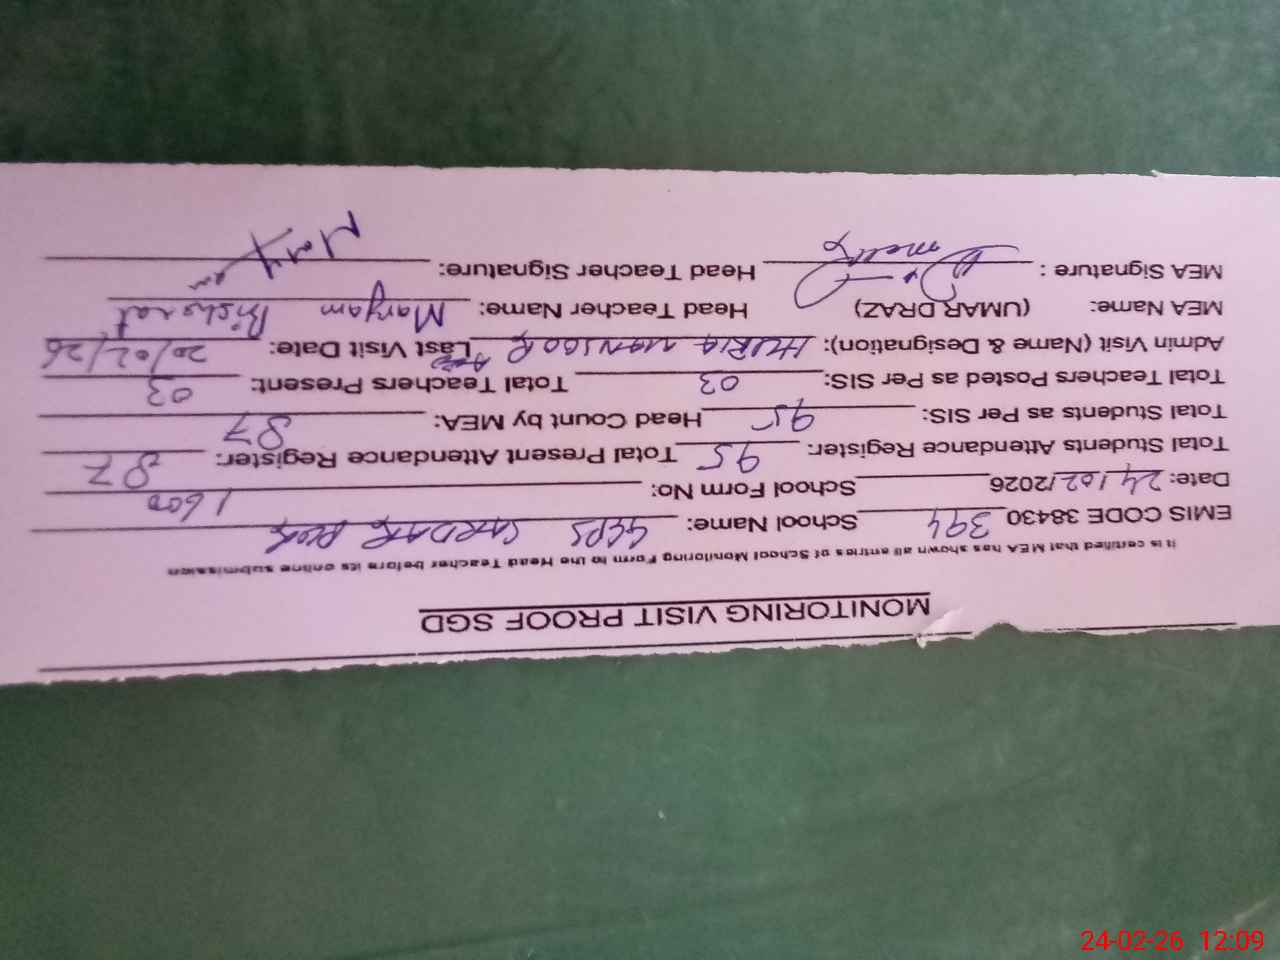 MONITORING VISIT PROOF SGD
It is certified that MEA has shown all entries of School Monitoring Form to the Head Teacher before its online submission
EMIS CODE 38430 394 School Name: GEPS SARDAR PUR
Date: 24/02/2026 School Form No: 1600
Total Students Attendance Register: 95 Total Present Attendance Register: 87
Total Students as Per SIS: 95 Head Count by MEA: 87
Total Teachers Posted as Per SIS: 03 Total Teachers Present: 03
Admin Visit (Name & Designation): MANSOOR Last Visit Date: 20/02/26
MEA Name: (UMAR DRAZ) Head Teacher Name: Maryam
MEA Signature : Head Teacher Signature: Maryam
24-02-26 12:09